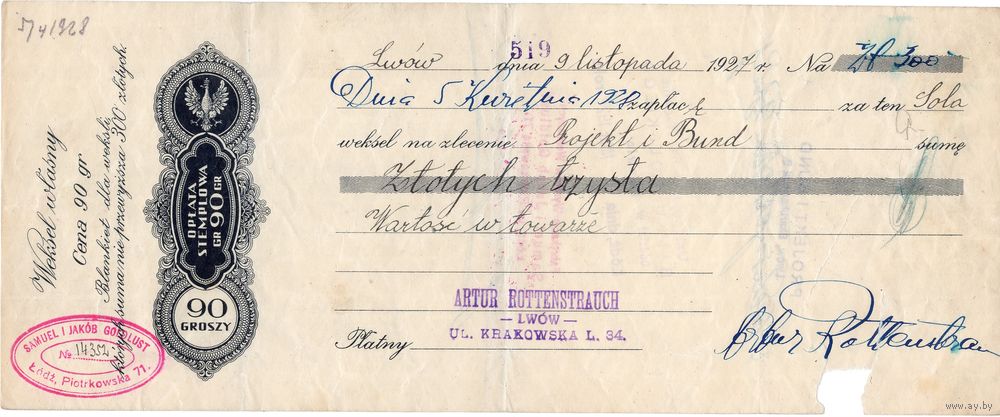 5/4 1928
Weksel własny
Cena 90 gr
Blankiet dla weksli,
których suma nie przewyższa 300 złotych.
OPŁATA
STEMPLOWA
GR 90 GR
90
GROSZY
SAMUEL I JAKÓB GOLDLUST
№ 14352
Łódź, Piotrkowska 71.
519
Lwów dnia 9 listopada 1927 r. Na Zł 300
Dnia 5 Kwietnia 1928 zapłacę za ten Sola
weksel na zlecenie Projekt i Bund sumę
Złotych trzysta
Wartość w towarze
ARTUR ROTTENSTRAUCH
— LWÓW —
UL. KRAKOWSKA L. 34.
Płatny
Rottenstrau
www.ay.by